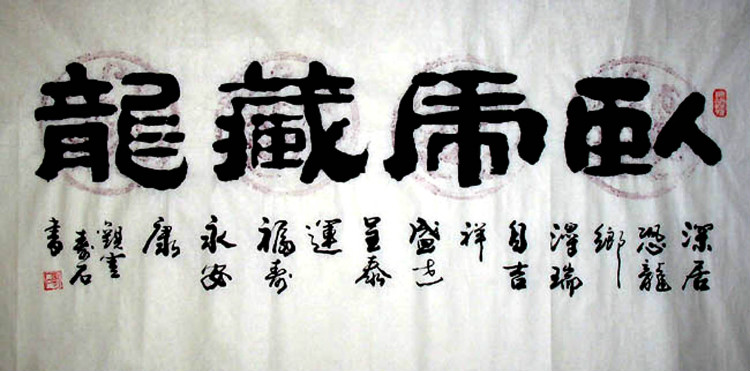 臥虎藏龍
深居
恐龍
鄉
得瑞
自吉
祥
盛世
呈泰
運
福壽
永安
康
觀雲
壽石
書